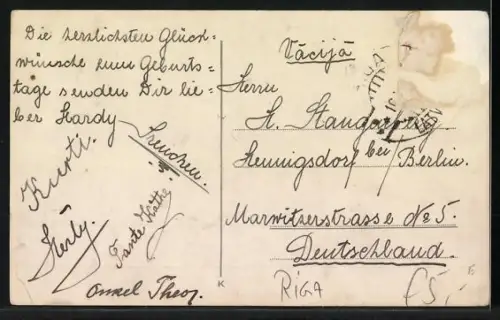 Die herzlichsten Glück-
wünsche zum Geburts-
tage senden Dir lie-
ber Hardy
Lenchen.
Kurti.
Herly.
Tante Käthe
Onkel Theo.
Vācijā
Herrn
H.
Hennigsdorf bei Berlin.
Marwitzerstrasse No 5.
Deutschland.
RIGA
K